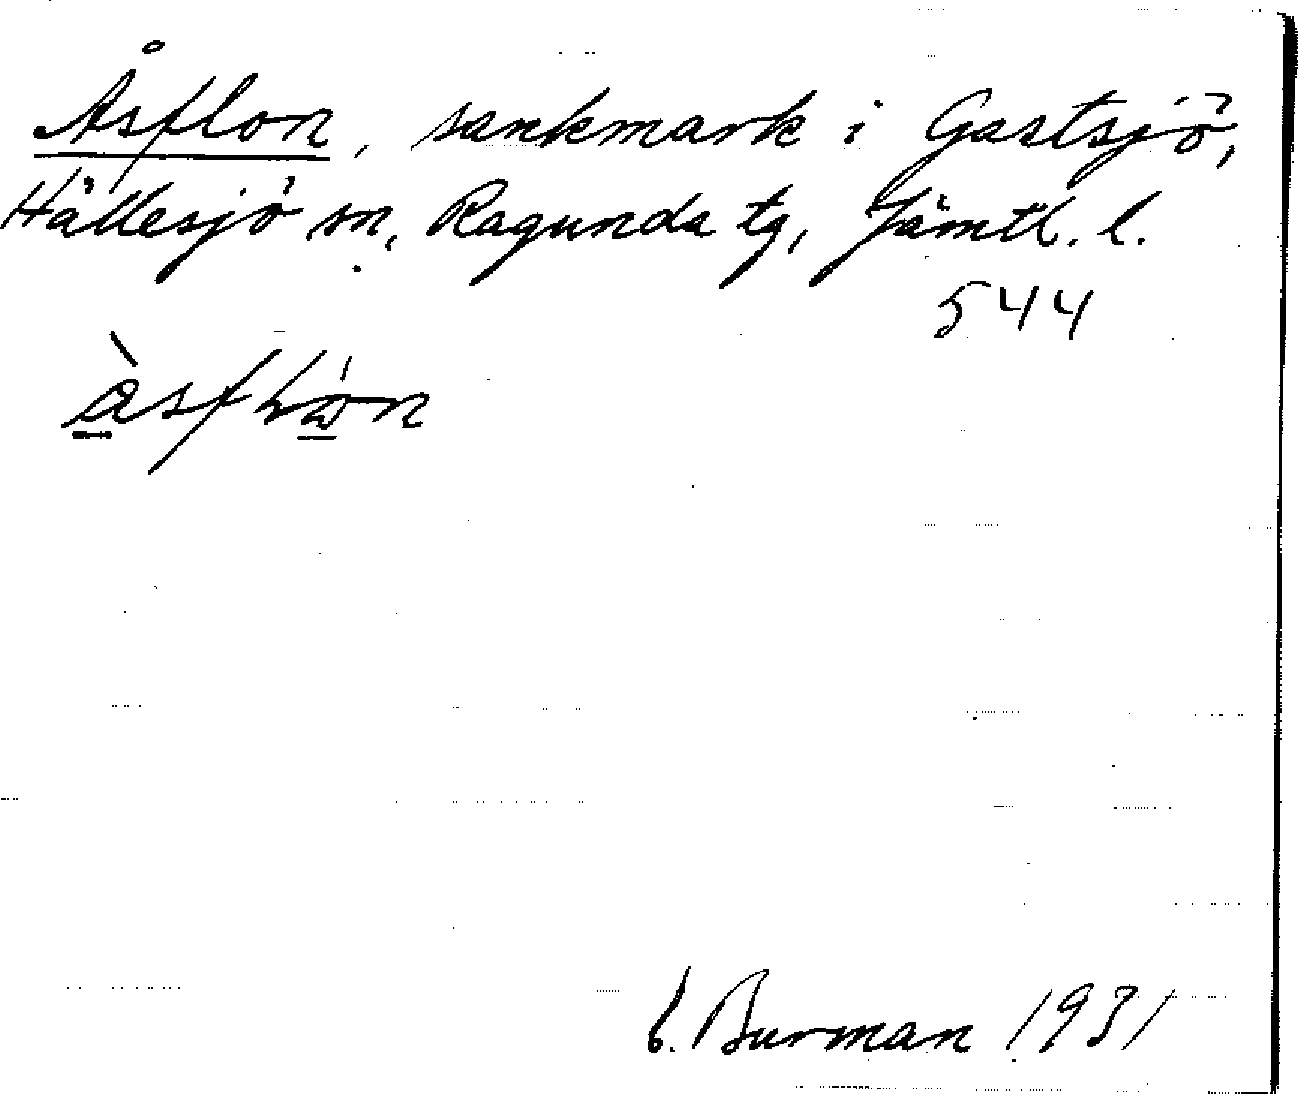 Åsflon, sankmark i Gastsjö,
Hällesjö sn, Ragunda tg, Jämtl. l.
544
Burman 1931